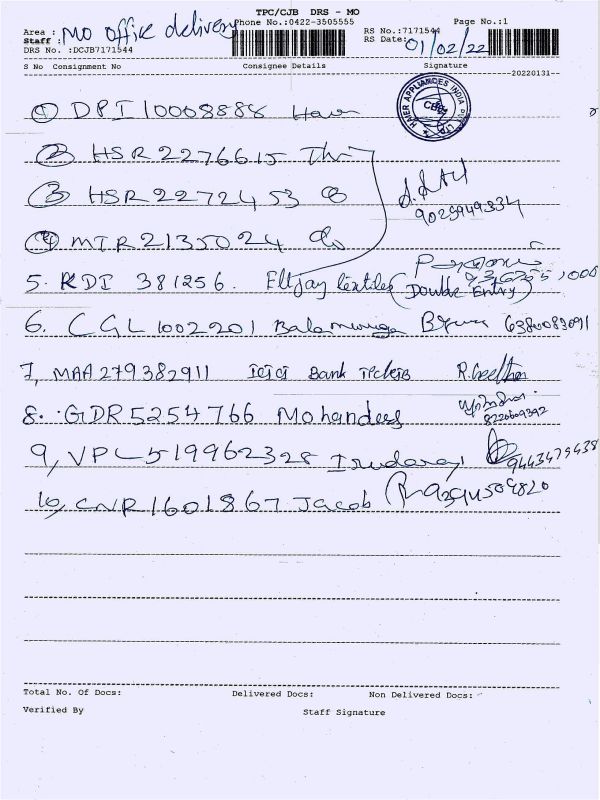 TPC/CJB DRS - MO
Area : MO office delivery Phone No.:0422-3505555 RS No.:7171544 Page No.:1
Staff : RS Date: 01/02/22
DRS No. :DCJB7171544
S No Consignment No Consignee Details Signature
20220131
HAIER APPLIANCES INDIA
① DPI 10008888
② HSR 2276615
③ HSR 2272453
9025949334
④ MTR 2135024
5. KDI 381256. Elljay textiles (Double Entry)
6. CGL1002201 Balamuruga 6380083091
7, MAA 279382911 ICICI Bank R.Geetha
8. GDR 5254766 Mohandees 8220609392
9, VPL519962328 Irudaraj 9443479438
10, CNR1601867 Jacob
Total No. Of Docs: Delivered Docs: Non Delivered Docs:
Verified By Staff Signature